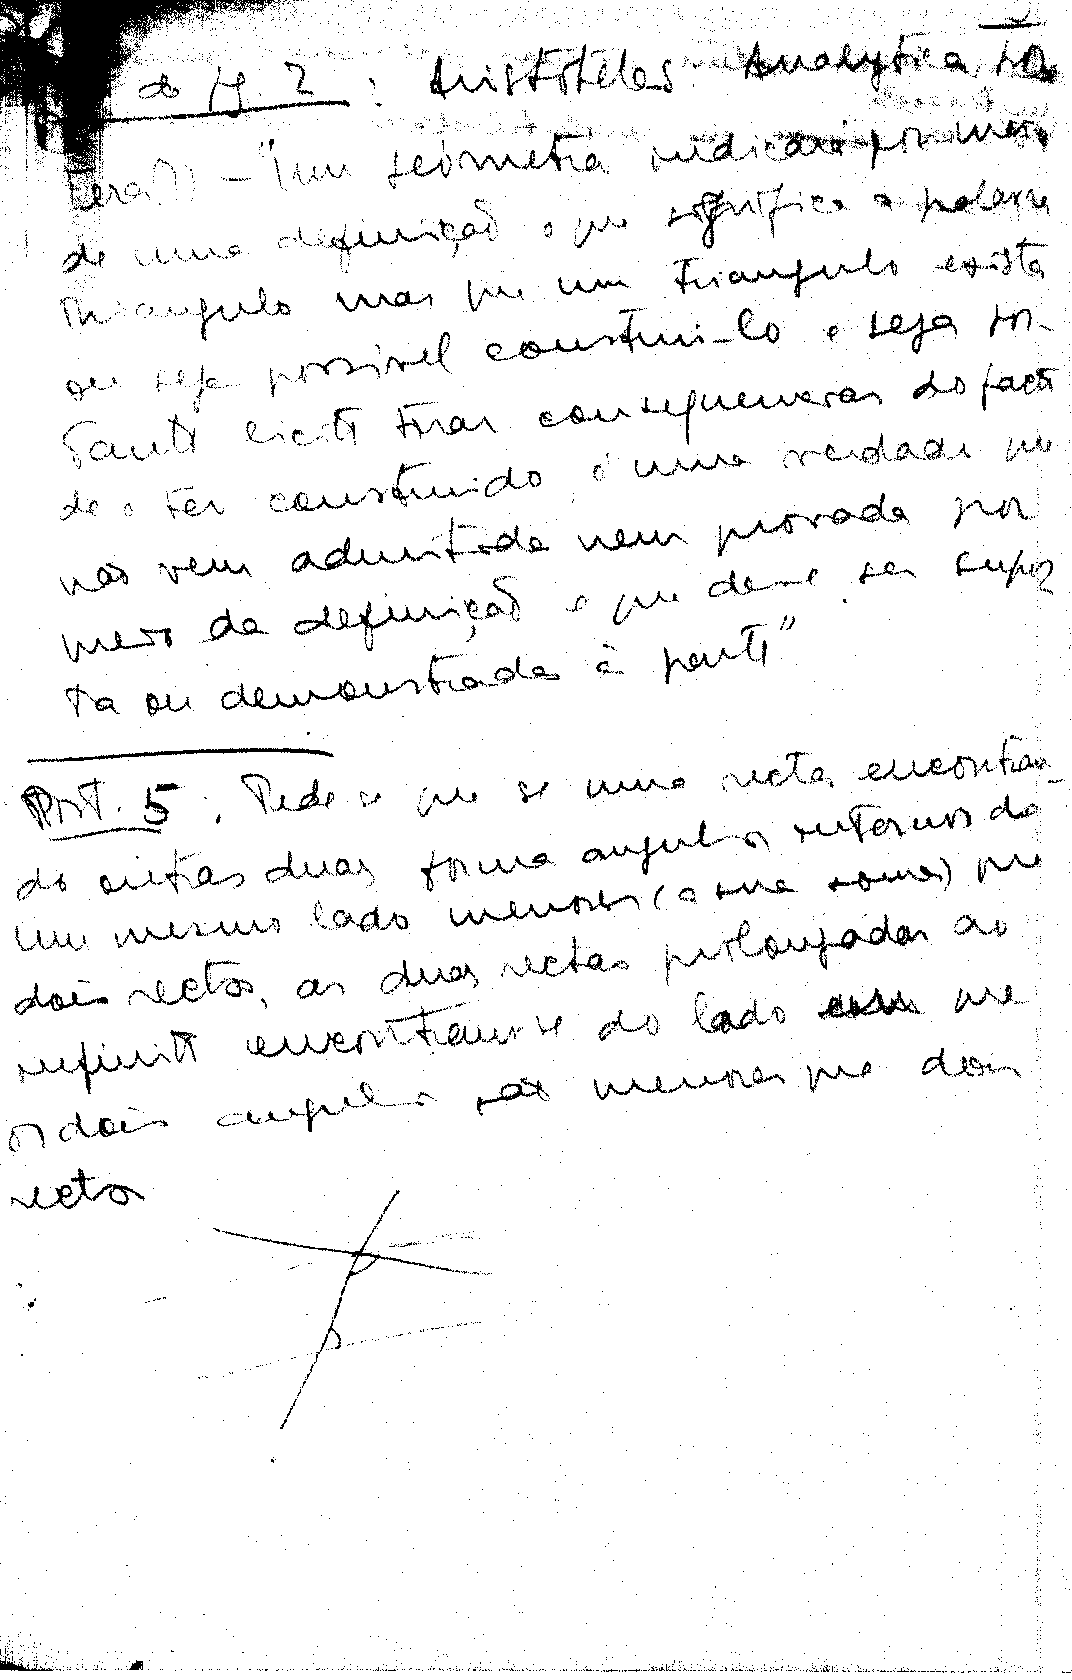 pg. 2 : Aristoteles Analytica Pos
tera(?) – "Um geómetra indicará por meio
de uma definição o que significa a palavra
triangulo mas que um triangulo exista
ou seja possivel construi-lo e seja por-
tanto licito tirar consequencias do facto
de o ter construido, é uma verdade que
não vem admitida nem provada por
meio da definição e que deve ser supos
ta ou demonstrada à parte"
Post. 5 : Pede se que se uma recta encontran-
do outras duas forma angulos internos do
um mesmo lado menores (a sua soma) que
dois rectos, as duas rectas prolongadas ao
infinito encontram-se do lado em que
os dois angulos são menores que dois
rectos